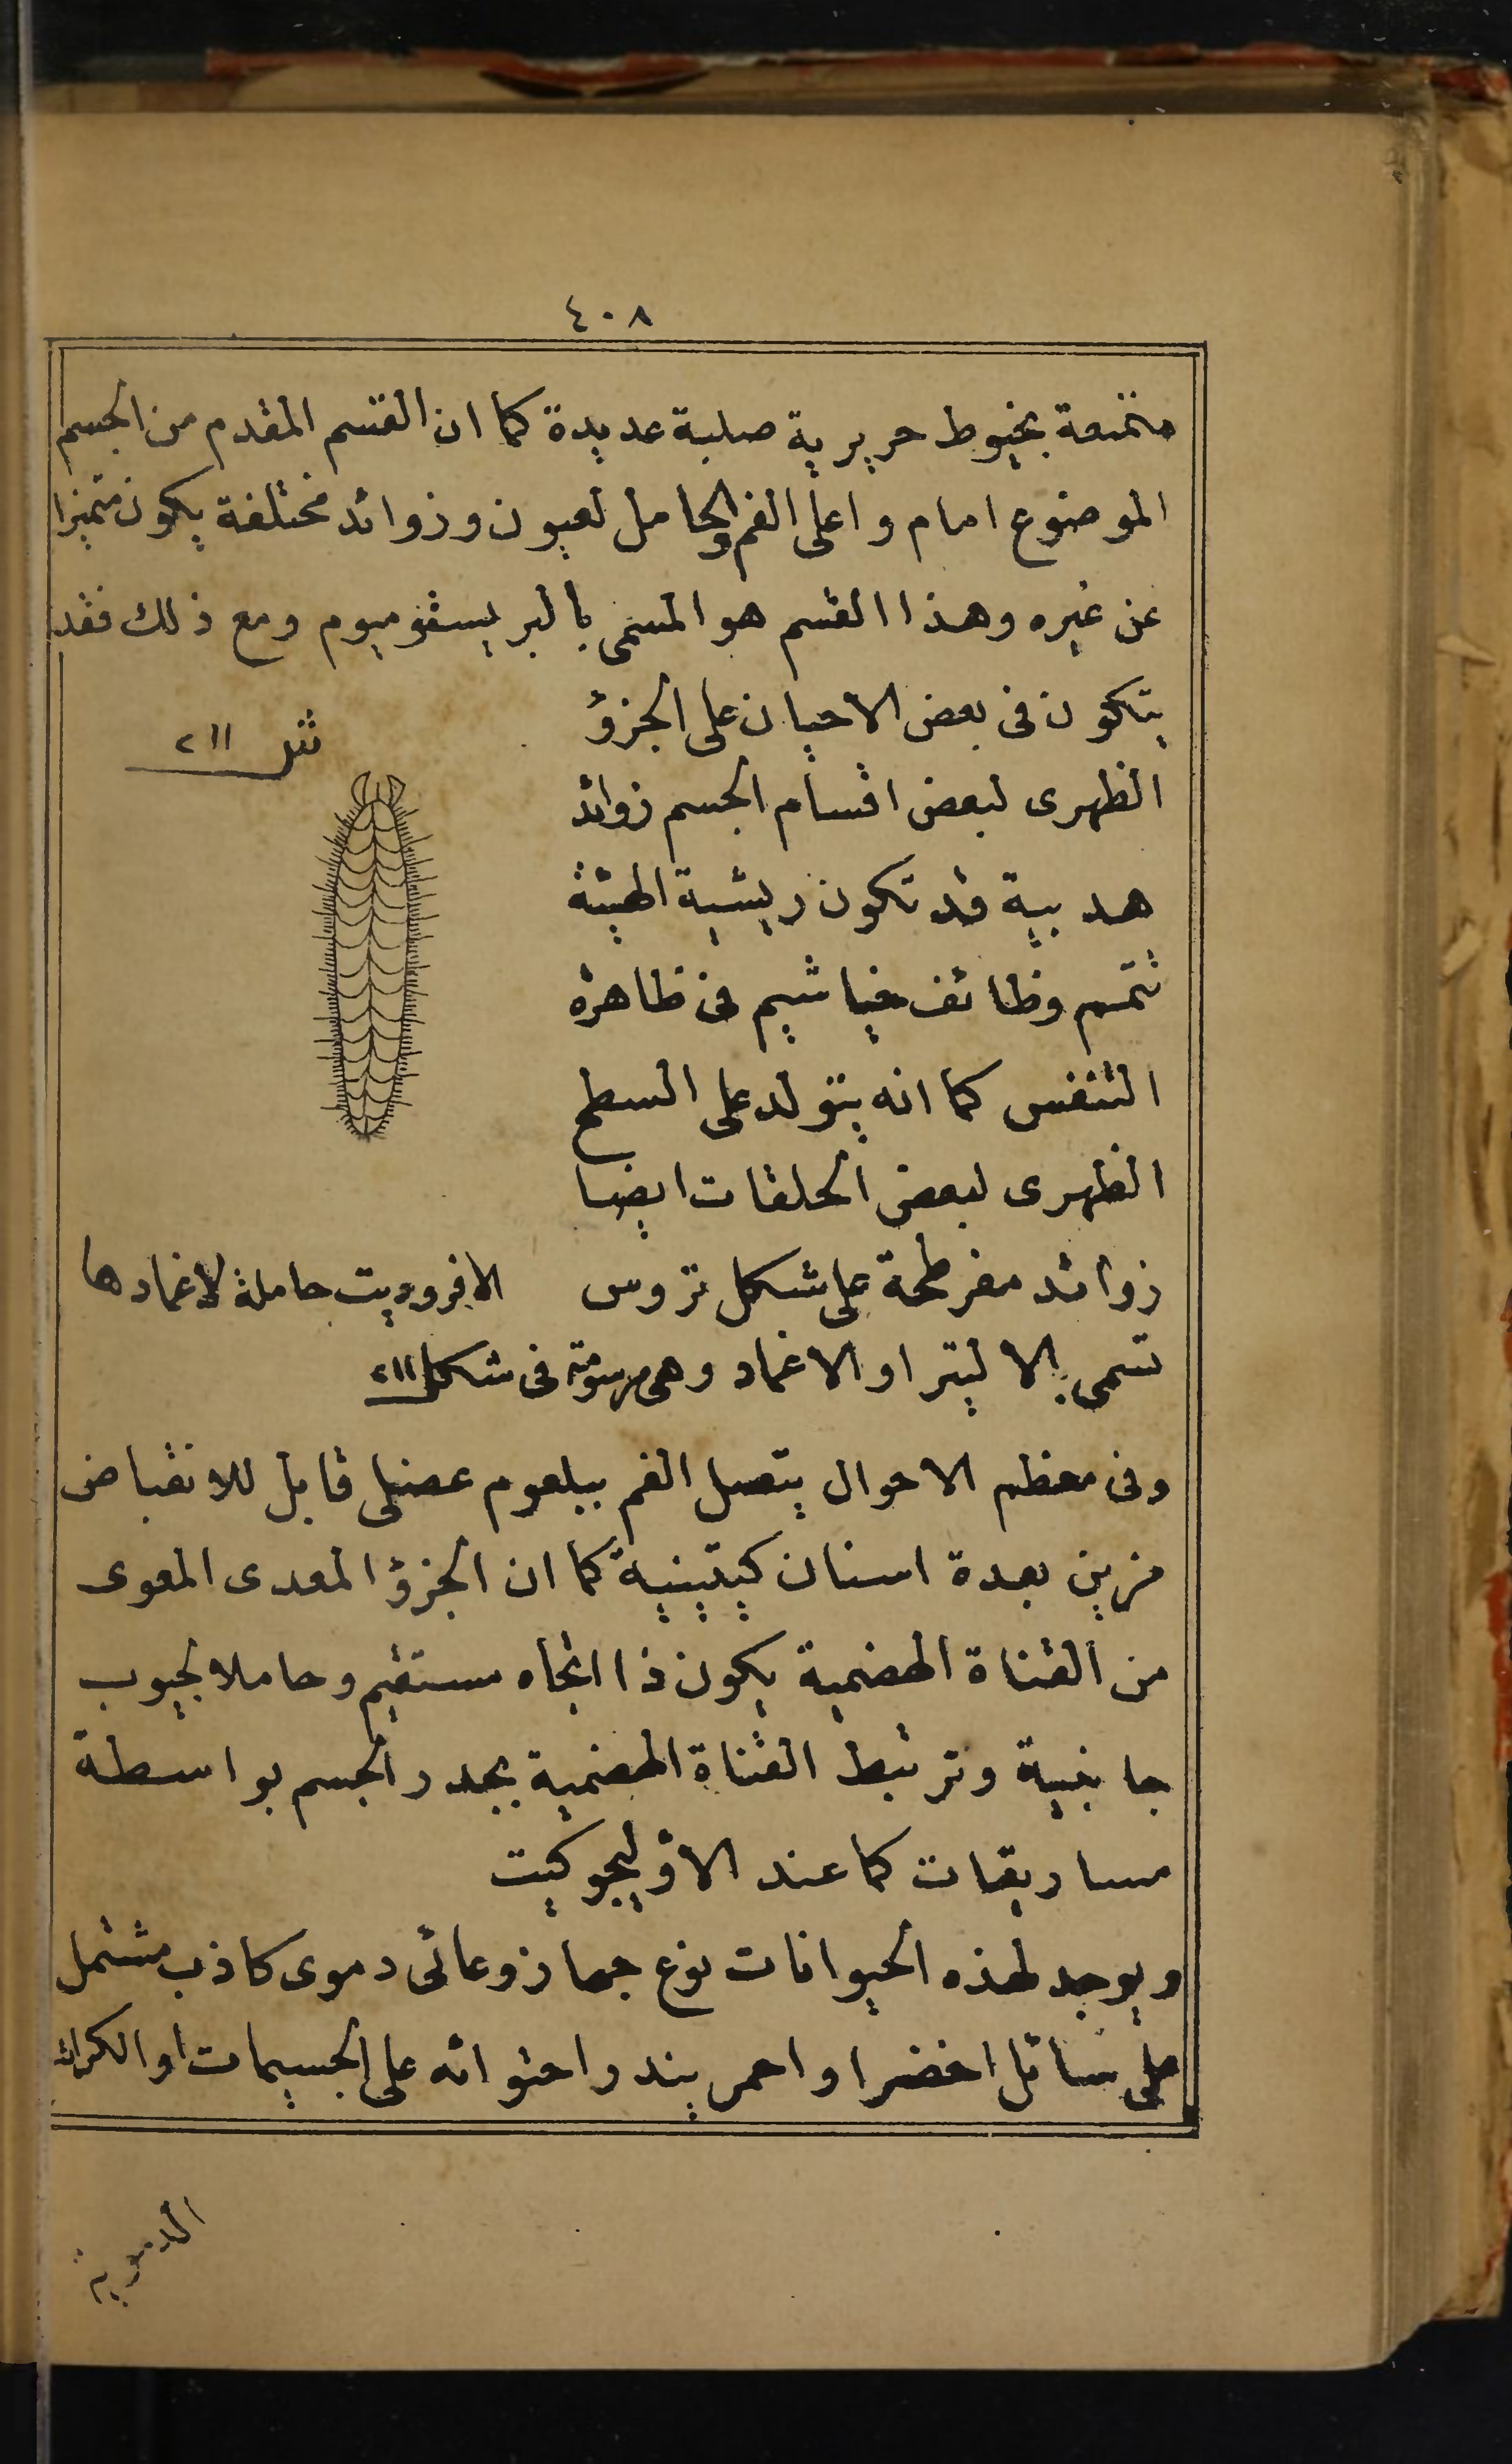 ٤٠٨
منتهية بخيوط حريرية صلبة عديدة كما ان القسم المقدم من الجسم
الموضوع امام واعلى الفم والحامل لعيون وزوائد مختلفة يكون متميزا
عن غيره وهذا القسم هو المسمى بالبريستوميوم ومع ذلك فقد
يتكون فى بعض الاحيان على الجزؤ
شكل ٢١١
الظهرى لبعض اقسام الجسم زوائد
هدبية قد تكون ريشية الهيئة
تتمم وظائف خياشيم فى ظاهرة
التنفس كما انه يتولد على السطح
الظهرى لبعض الحلقات ايضا
زوائد مفرطحة على شكل تروس
الافروديت حاملة لاغمادها
تسمى بالاليتر او الاغماد وهى مرسومة فى شكل ٢١١
وفى معظم الاحوال يتصل الفم ببلعوم عضلى قابل للانقباض
مزين بعدة اسنان كيتينية كما ان الجزؤ المعدى المعوى
من القناة الهضمية يكون ذا اتجاه مستقيم وحاملا لجيوب
جانبية وترتبط القناة الهضمية بجدر الجسم بواسطة
مساريقات كما عند الاوليجوكيت
ويوجد لهذه الحيوانات نوع جهاز وعائى دموى كاذب مشتمل
على سائل اخضر او احمر يندر احتوائه على الجسيمات او الكرات
الدموية